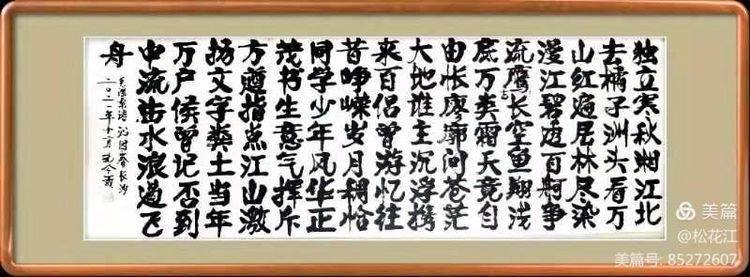 独立寒秋湘江北
去橘子洲头看万
山红遍层林尽染
漫江碧透百舸争
流鹰击长空鱼翔浅
底万类霜天竞自
由怅廖廓问苍茫
大地谁主沉浮携
来百侣曾游忆往
昔峥嵘岁月稠恰
同学少年风华正
茂书生意气挥斥
方遒指点江山激
扬文字粪土当年
万户侯曾记否到
中流击水浪遏飞
舟
毛泽东诗沁园春长沙
二〇二一年十一月
美篇
@松花江
美篇号: 85272607